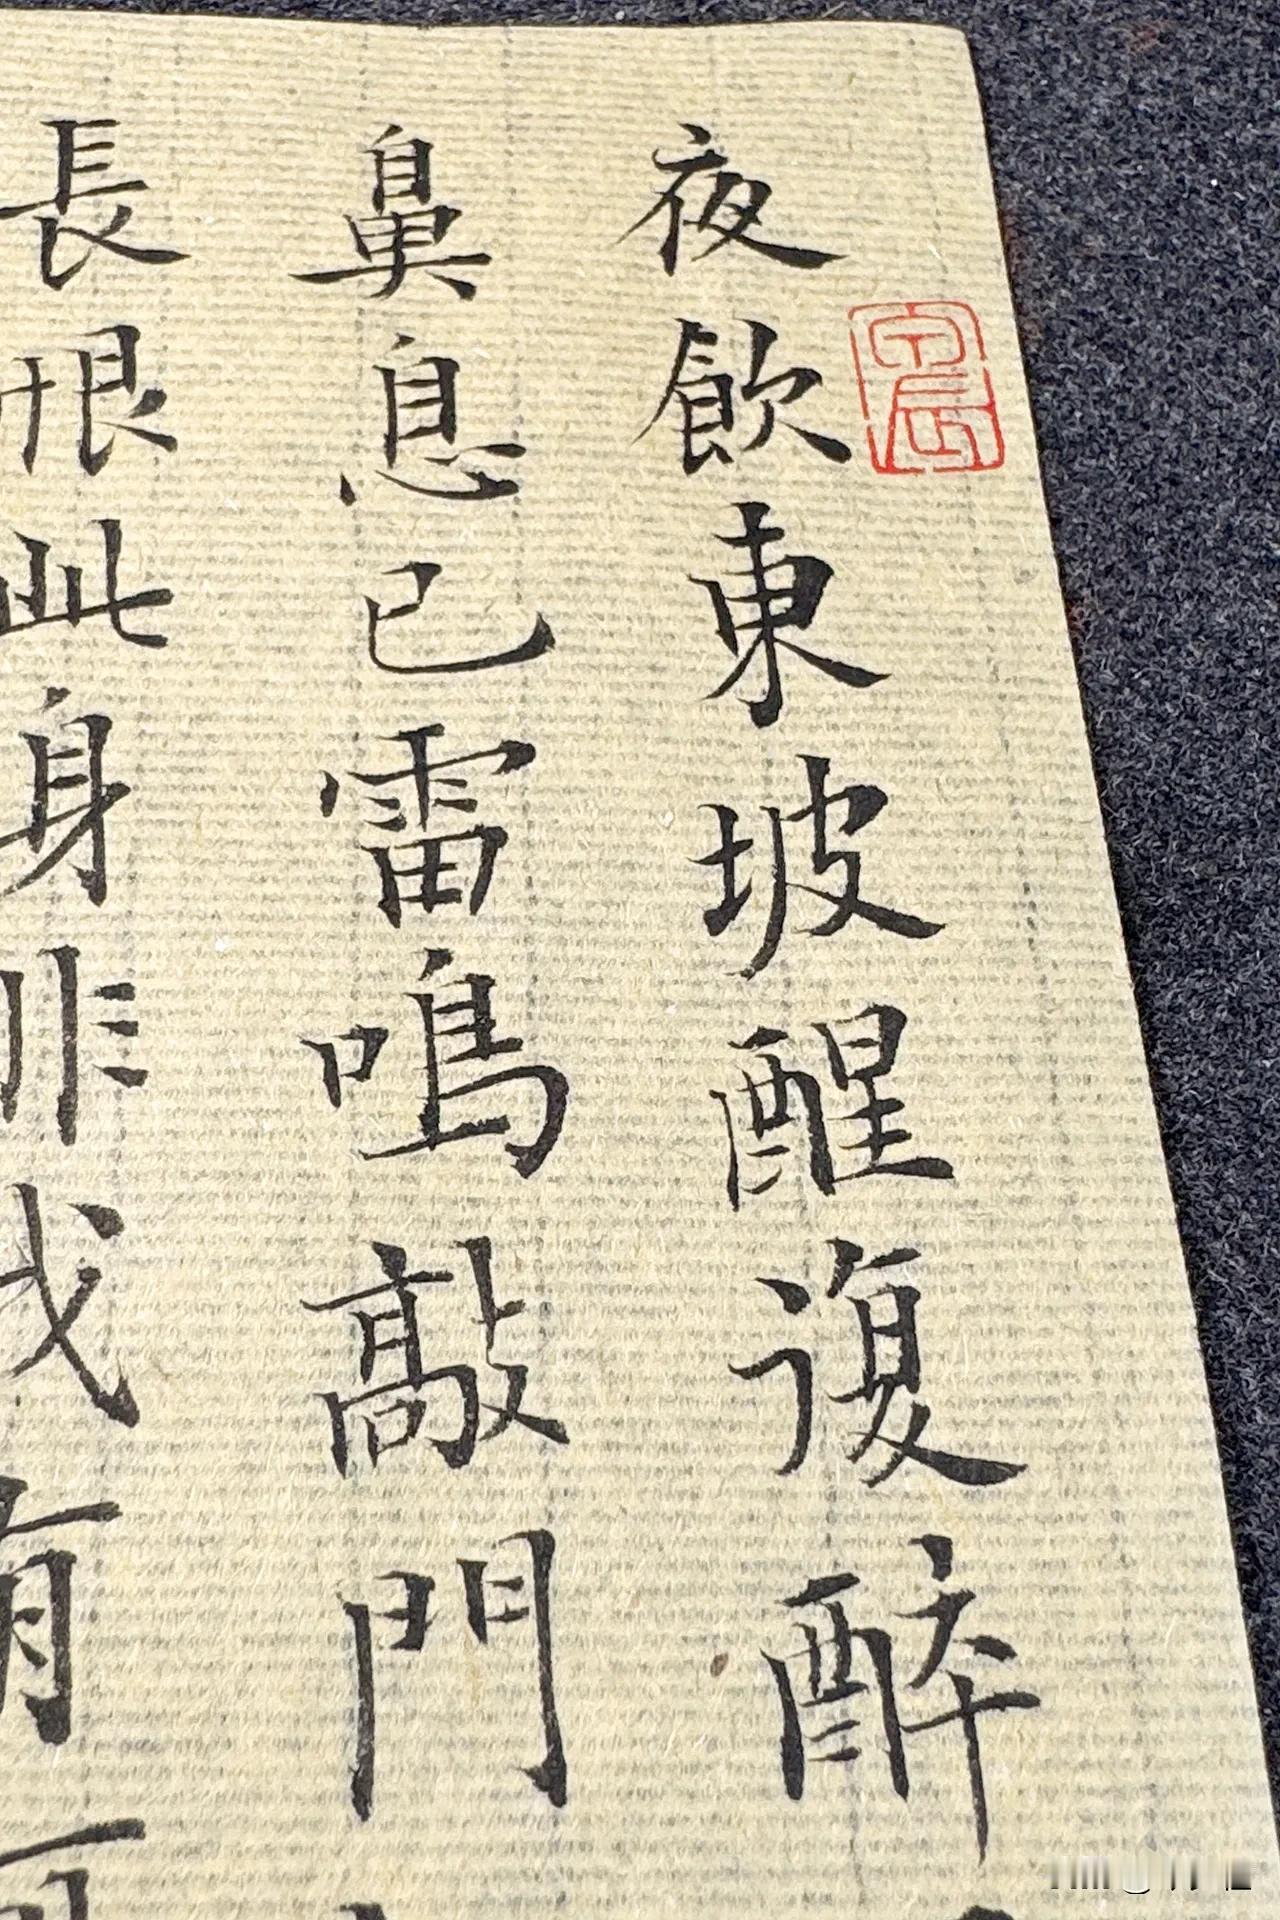 夜飲東坡醒復醉
鼻息已雷鳴敲門
長恨此身非我有